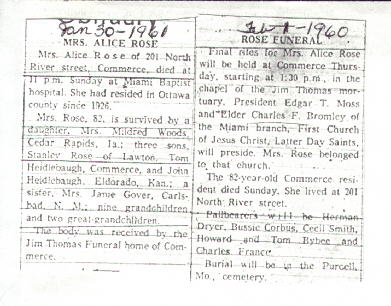 Jan 30-1961
MRS. ALICE ROSE
Mrs. Alice Rose of 201 North
River street, Commerce, died at
11 p.m. Sunday at Miami Baptist
hospital. She had resided in Ottawa
county since 1926.
Mrs. Rose, 82, is survived by a
daughter, Mrs. Mildred Woods,
Cedar Rapids, Ia.; three sons,
Stanley Rose of Lawton, Tom
Heidlebaugh, Commerce, and John
Heidlebaugh, Eldorado, Kan.; a
sister, Mrs. Jamie Gover, Carls-
bad, N. M.; nine grandchildren
and two great-grandchildren.
The body was received by the
Jim Thomas Funeral home of Com-
merce.
Feb 1-1960
ROSE FUNERAL
Final rites for Mrs. Alice Rose
will be held at Commerce Thurs-
day, starting at 1:30 p.m., in the
chapel of the Jim Thomas mor-
tuary. President Edgar T. Moss
and Elder Charles F. Bromley of
the Miami branch, First Church
of Jesus Christ, Latter Day Saints,
will preside. Mrs. Rose belonged
to that church.
The 82-year-old Commerce resi-
dent died Sunday. She lived at 201
North River street.
Pallbearers will be Herman
Dryer, Bussie Corbus, Cecil Smith,
Howard and Tom Bybee and
Charles France.
Burial will be in the Purcell,
Mo., cemetery.